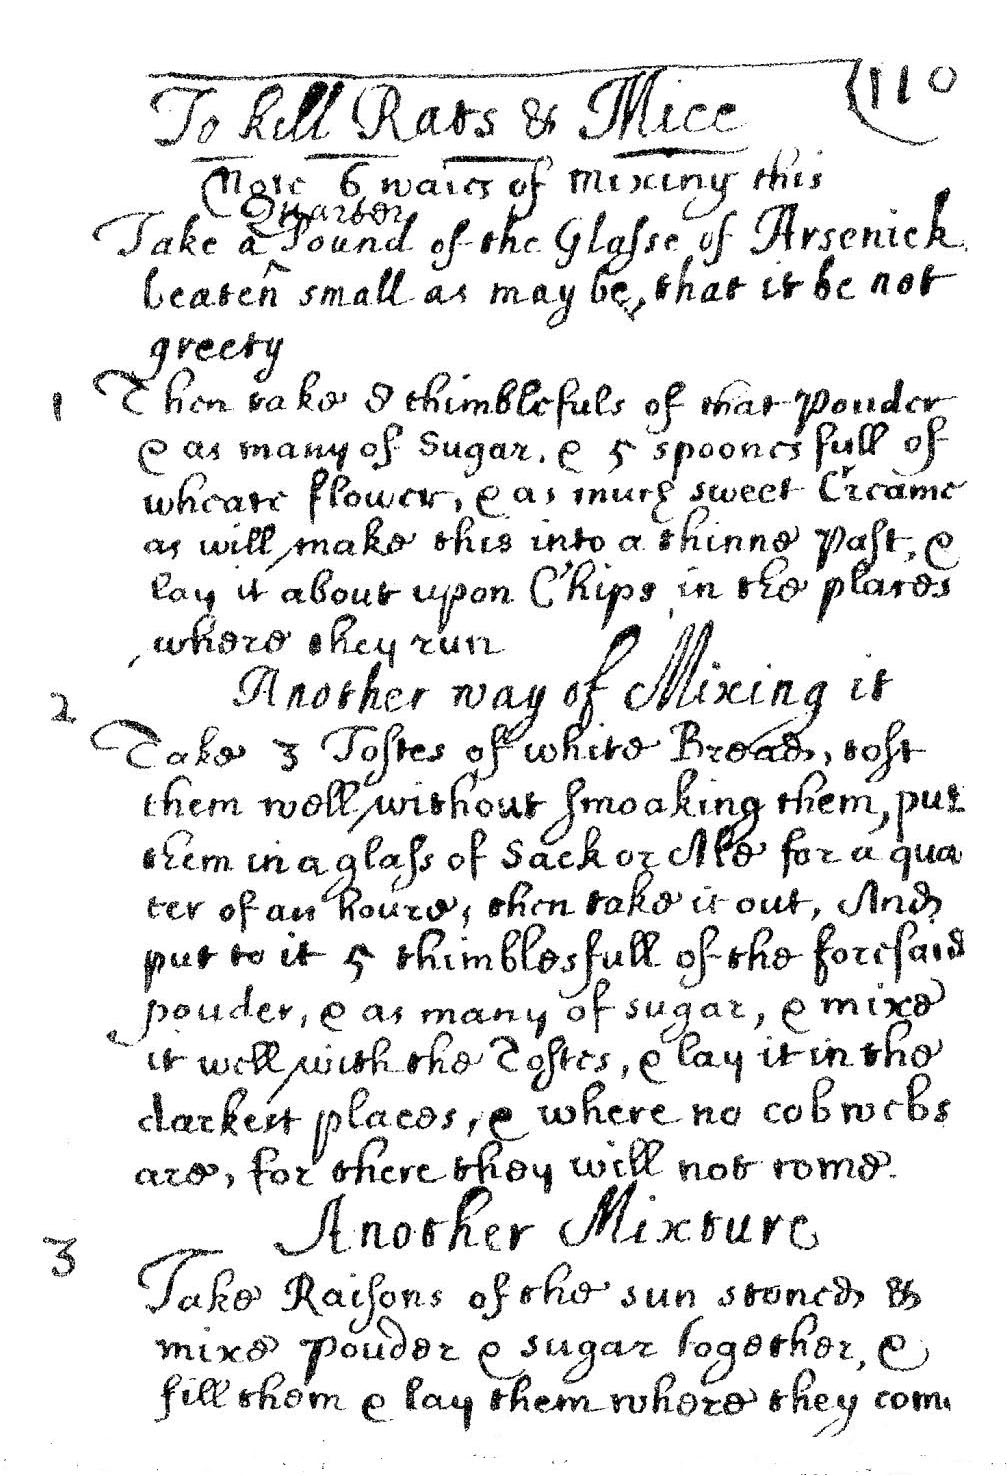 110
To kill Rats & Mice
Note 6 waies of mixing this
Quarter
Take a Pound of the Glasse of Arsenick
beaten small as may be, that it be not
greety
1 Then take 8 thimblefuls of that Pouder
& as many of Sugar, & 5 spoones full of
wheate flower, & as much sweet Creame
as will make this into a thinne Past, &
lay it about upon Chips in the places
where they run
Another way of Mixing it
2
Take 3 Tostes of white Bread, tost
them well without smoaking them, put
them in a glass of Sack or Ale for a qua
ter of an houre, then take it out, And
put to it 5 thimblesfull of the foresaid
pouder, & as many of sugar, & mixe
it well with the Tostes, & lay it in the
darkest places, & where no cobwebs
are, for there they will not come.
Another Mixture
3
Take Raisons of the sun stoned &
mixe Pouder & sugar together, &
fill them & lay them where they com